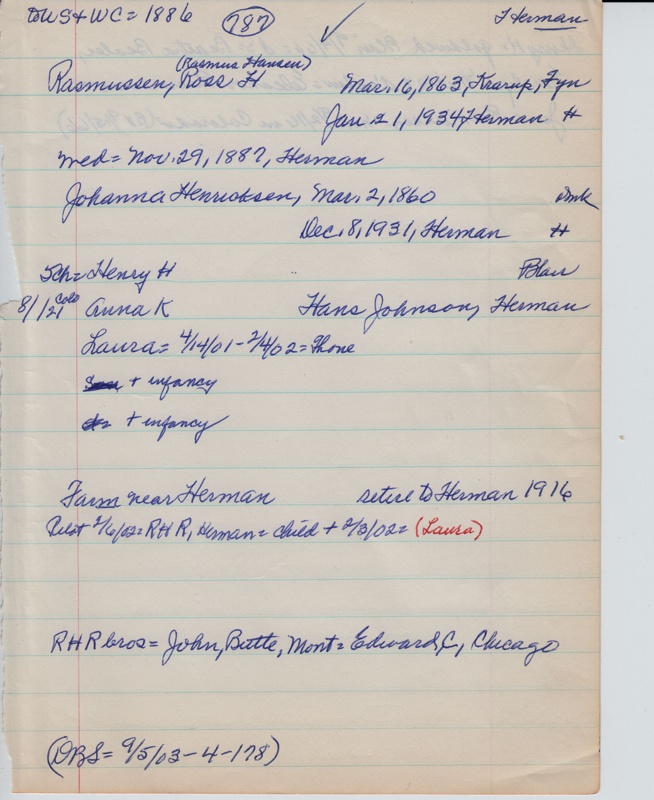 to US + WC = 1886 787 Herman
(Rasmus Hansen)
Rasmussen, Ross H Mar. 16, 1863, Krarup, Fyn
Jan 21, 1934, Herman H
med = Nov. 29, 1887, Herman
Johanna Henricksen, Mar. 2, 1860 Dmk
Dec. 8, 1931, Herman H
Sch = Henry H Blair
8/1/21 Colo Anna K Hans Johnson, Herman
Laura = 4/14/01 - 2/4/02 = Phone
+ infancy
+ infancy
Farm near Herman retire to Herman 1916
Pilot 2/6/02 = R H R, Herman = child + 2/3/02 = (Laura)
R H R bros = John, Butte, Mont = Edward C, Chicago
(DBS = 9/5/03 - 4 - 178)